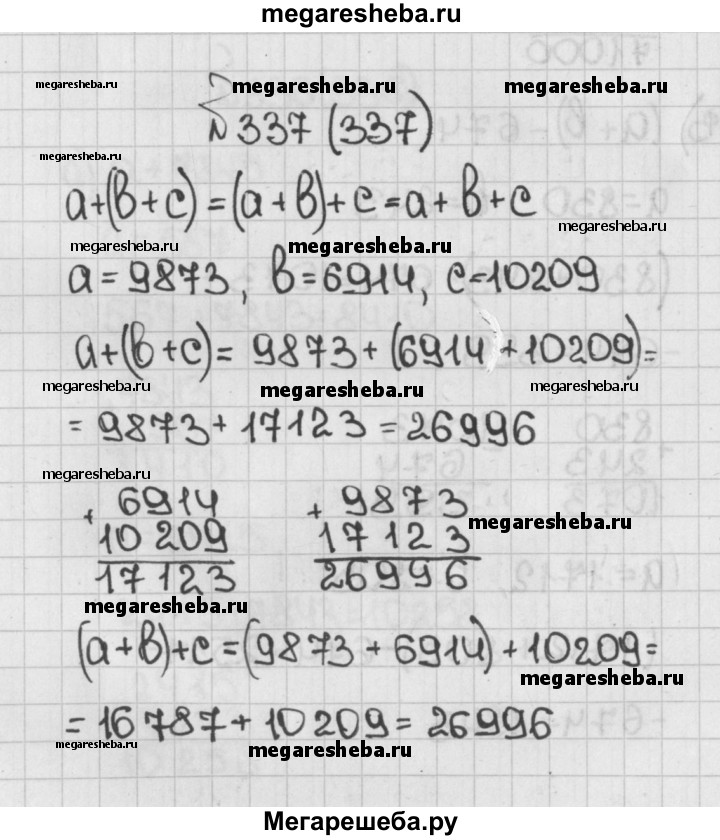 megaresheba.ru
megaresheba.ru megaresheba.ru megaresheba.ru
№ 337 (337)
megaresheba.ru
a+(b+c)=(a+b)+c=a+b+c
megaresheba.ru
megaresheba.ru megaresheba.ru
a=9873, b=6914, c=10209
a+(b+c)= 9873+(6914+10209)=
megaresheba.ru megaresheba.ru megaresheba.ru
= 9873+17123=26996
megaresheba.ru
+ 6914 + 9873
megaresheba.ru
10 209 17 123
17 123 26996
megaresheba.ru
(a+b)+c=(9873+6914)+10209=
megaresheba.ru
= 16 787+10 209= 26996
megaresheba.ru megaresheba.ru
Мегарешеба.ру